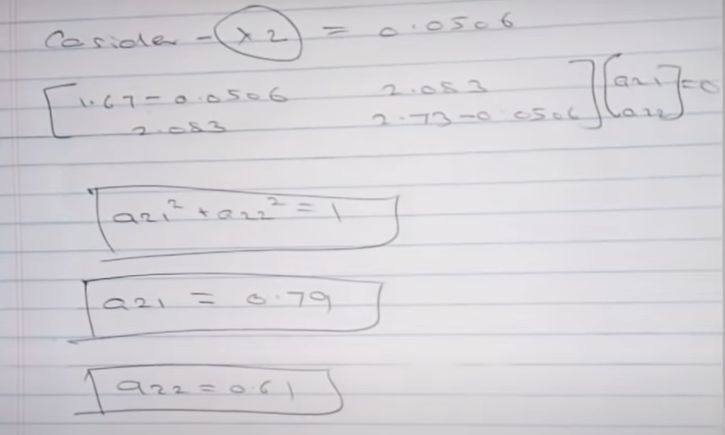 Casider - x2 = 0.0506
[1.67-0.0506 2.053
2.053 2.73-0.0506] [a21 a22] = 0
a21² + a22² = 1
a21 = 0.79
a22 = 0.61